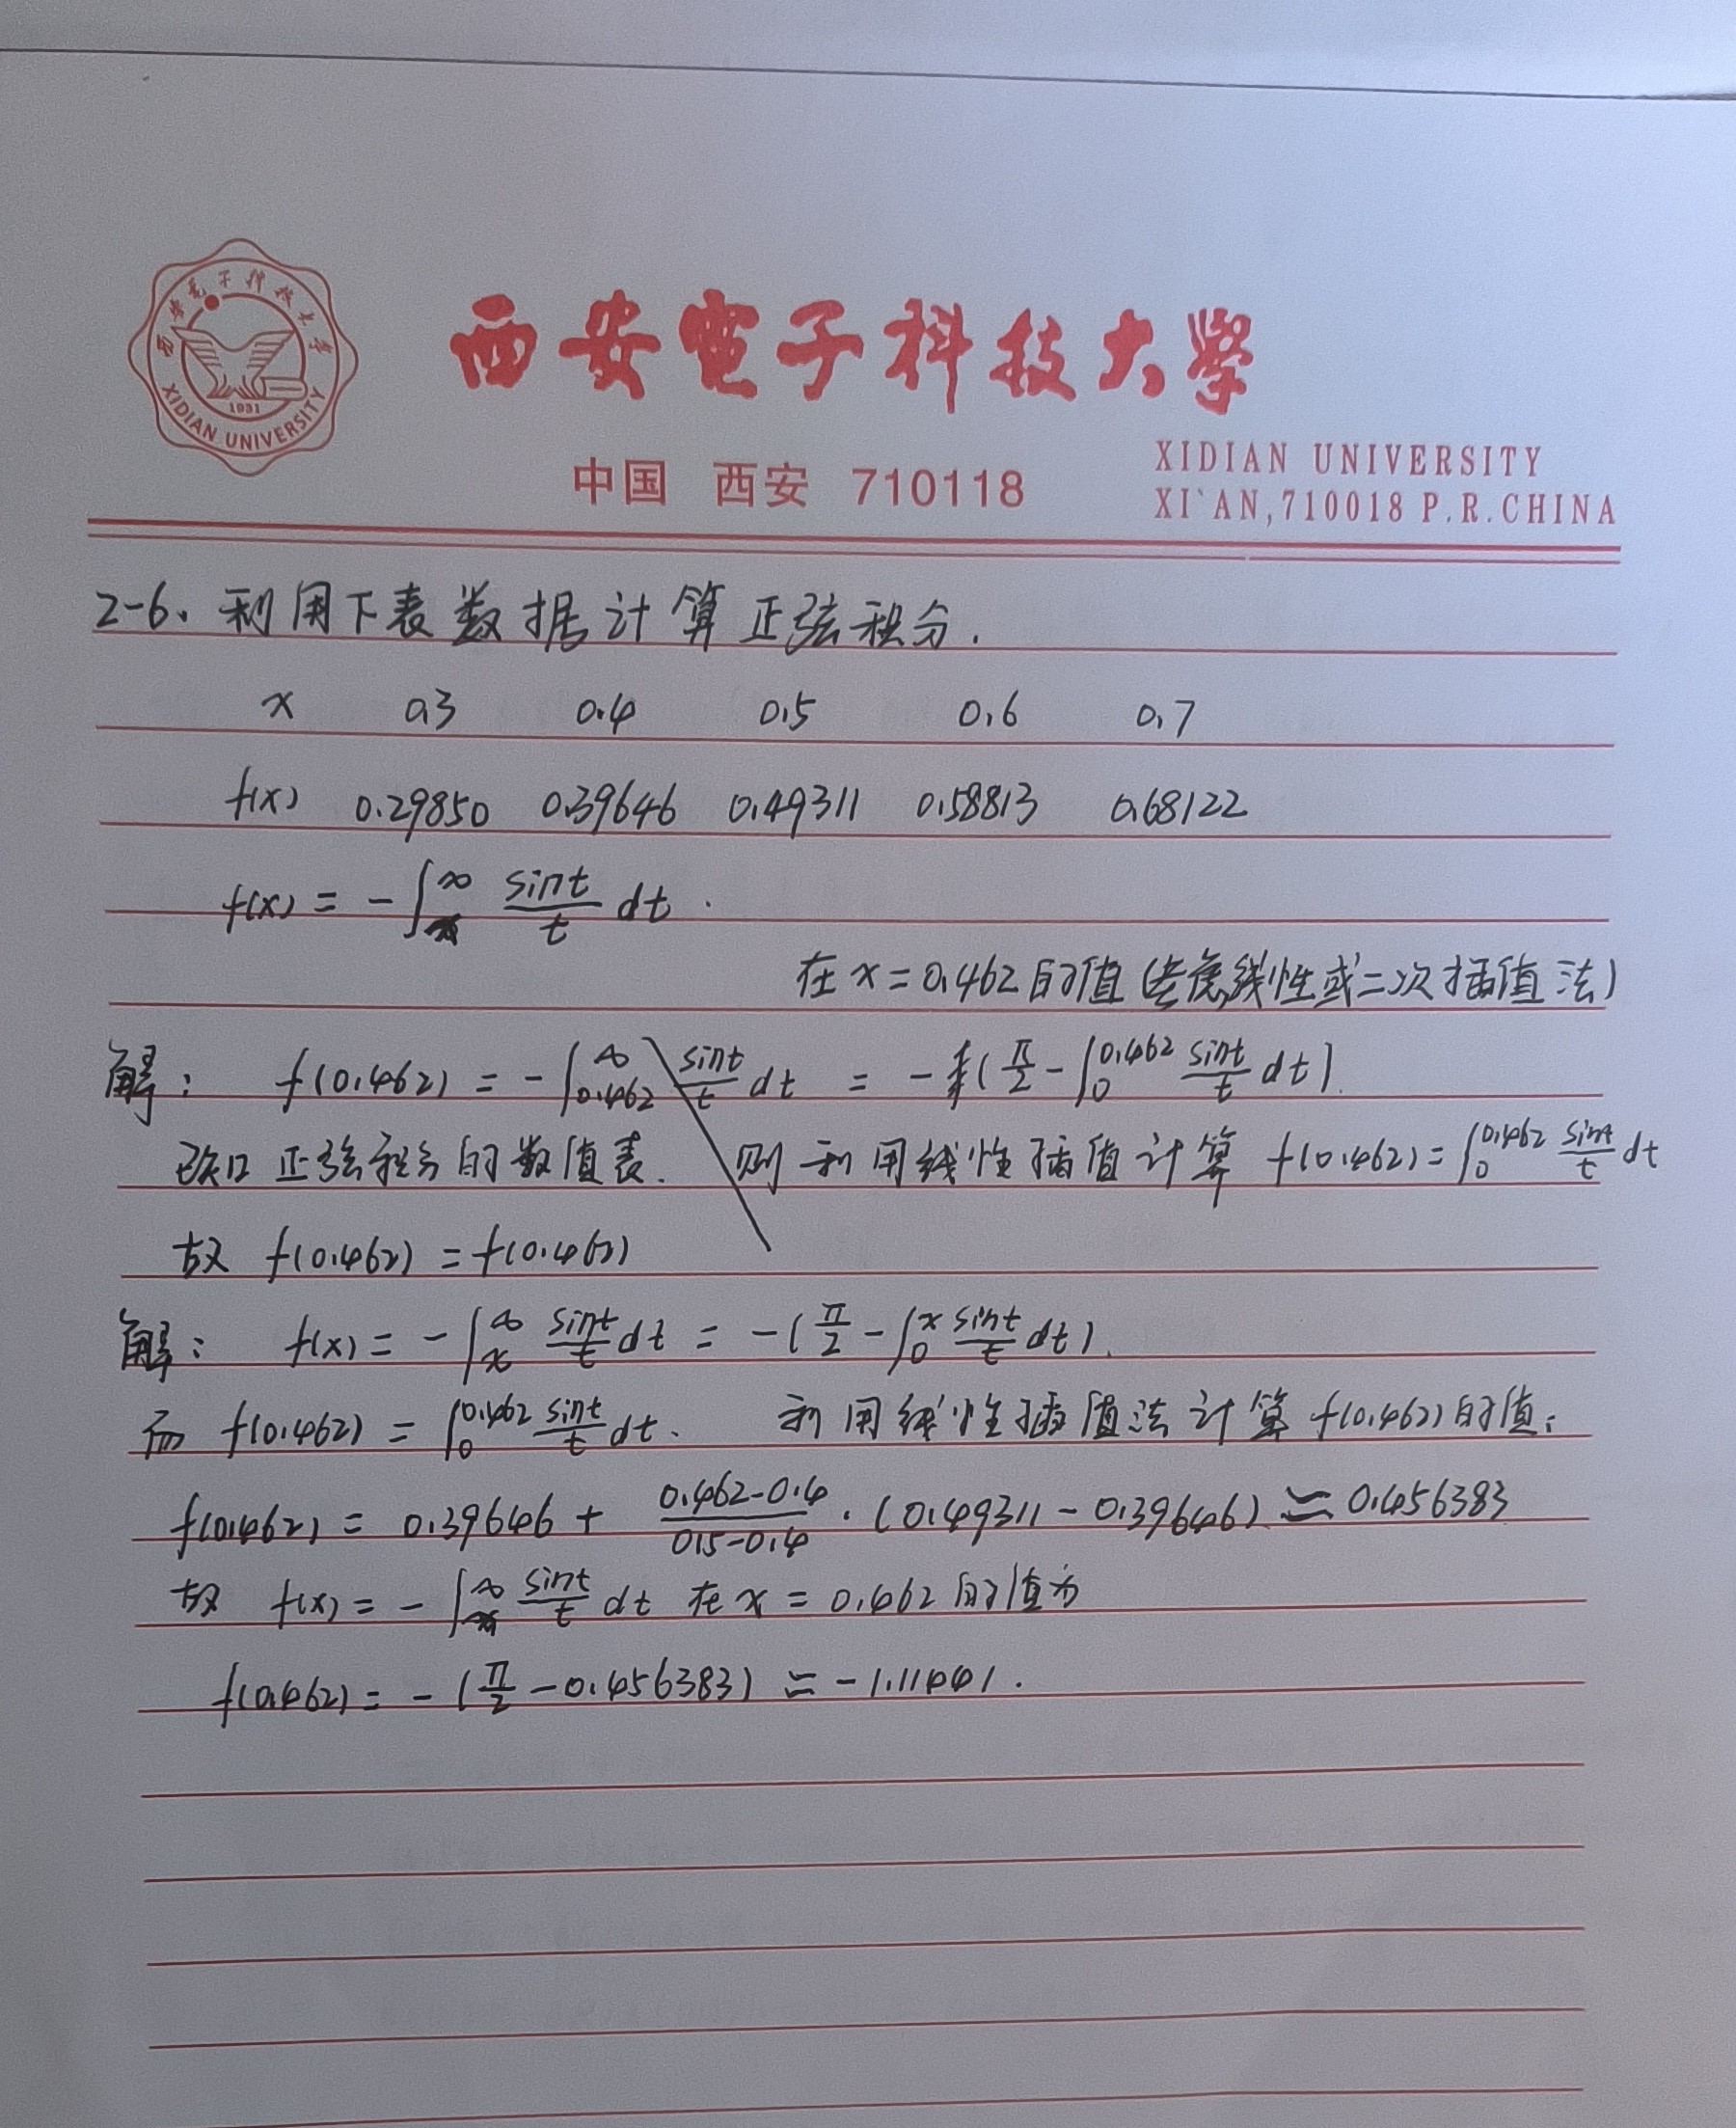 西安電子科技大學
XIDIAN UNIVERSITY
1931
西安電子科技大學
中国 西安 710118
XIDIAN UNIVERSITY
XI`AN,710018 P.R.CHINA
2-6、利用下表数据计算正弦积分.
x 0.3 0.4 0.5 0.6 0.7
f(x) 0.29850 0.39646 0.49311 0.58813 0.68122
f(x) = -∫_x^∞ sint/t dt .
在 x=0.462 的值(考虑线性或二次插值法)
解: f(0.462) = -∫_0.462^∞ sint/t dt = -(π/2 - ∫_0^0.462 sint/t dt).
已知正弦积分的数值表. 则利用线性插值计算 f(0.462)=∫_0^0.462 sint/t dt
故 f(0.462) = f(0.462)
解: f(x) = -∫_x^∞ sint/t dt = -(π/2 - ∫_0^x sint/t dt).
而 f(0.462) = ∫_0^0.462 sint/t dt. 利用线性插值法计算 f(0.462) 的值:
f(0.462) = 0.39646 + (0.462-0.4)/(0.5-0.4) · (0.49311-0.39646) ≈ 0.456383
故 f(x) = -∫_x^∞ sint/t dt 在 x = 0.462 的值为
f(0.462) = -(π/2 - 0.456383) ≈ -1.11441.